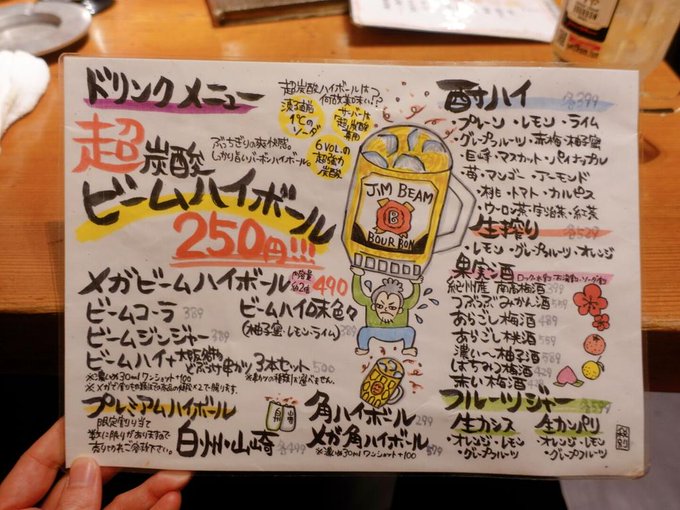 ドリンクメニュー
超炭酸
ビームハイボール
250円!!!
ぶっちぎりの爽快感。
しっかり旨いバーボンハイボール。
超炭酸ハイボールは
何故美味い!?
1℃の
ソーダ
サーバーは
超炭酸
専用
6VOL.の
超強力
炭酸
JIM BEAM
B
BOURBON
メガビームハイボール 内容量 約2倍 490
ビームコーラ 389
ビームジンジャー 389
ビームハイ味色々
(柚子蜜・レモン・ライム) 389
ビームハイ+大阪名物どぶづけ串カツ3本セット 500
※濃いめ30mlワンショット+100
プレミアムハイボール
限定割り当て
数に限りがありますので
売り切れご容赦下さい。
白州・山崎 各499
角ハイボール 299
メガ角ハイボール 579
※濃いめ30mlワンショット+100
酎ハイ 各399
・プレーン・レモン・ライム
・グレープフルーツ・赤梅・柚子蜜
・巨峰・マスカット・パイナップル
・苺・マンゴー・アーモンド
・桃・トマト・カルピス
・ウーロン茶・宇治茶・紅茶
生搾り 各529
・レモン・グレープフルーツ・オレンジ
果実酒
紀州産 南高梅酒 399
つぶつぶみかん酒 489
あらごし梅酒 489
あらごし桃酒
濃い〜柚子酒
はちみつ梅酒
赤い梅酒
フルーツジャー 各599
生カシス
・オレンジ・レモン
・グレープフルーツ
生カンパリ
・オレンジ・レモン
・グレープフルーツ